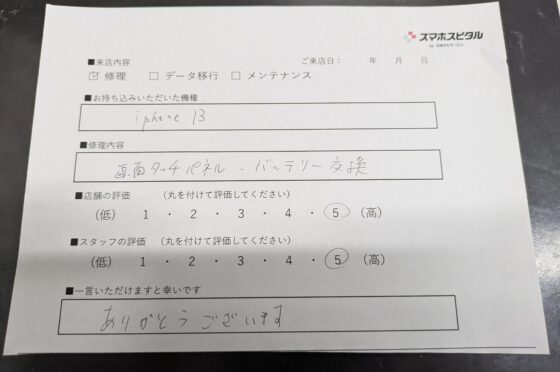 スマホスピタル
■来店内容
ご来店日： 年 月 日
☑ 修理 □ データ移行 □ メンテナンス
■お持ち込みいただいた機種
iphone 13
■修理内容
画面タッチパネル・バッテリー交換
■店舗の評価 （丸を付けて評価してください）
（低） 1 ・ 2 ・ 3 ・ 4 ・ 5 （高）
■スタッフの評価 （丸を付けて評価してください）
（低） 1 ・ 2 ・ 3 ・ 4 ・ 5 （高）
■一言いただけますと幸いです
ありがとうございます.